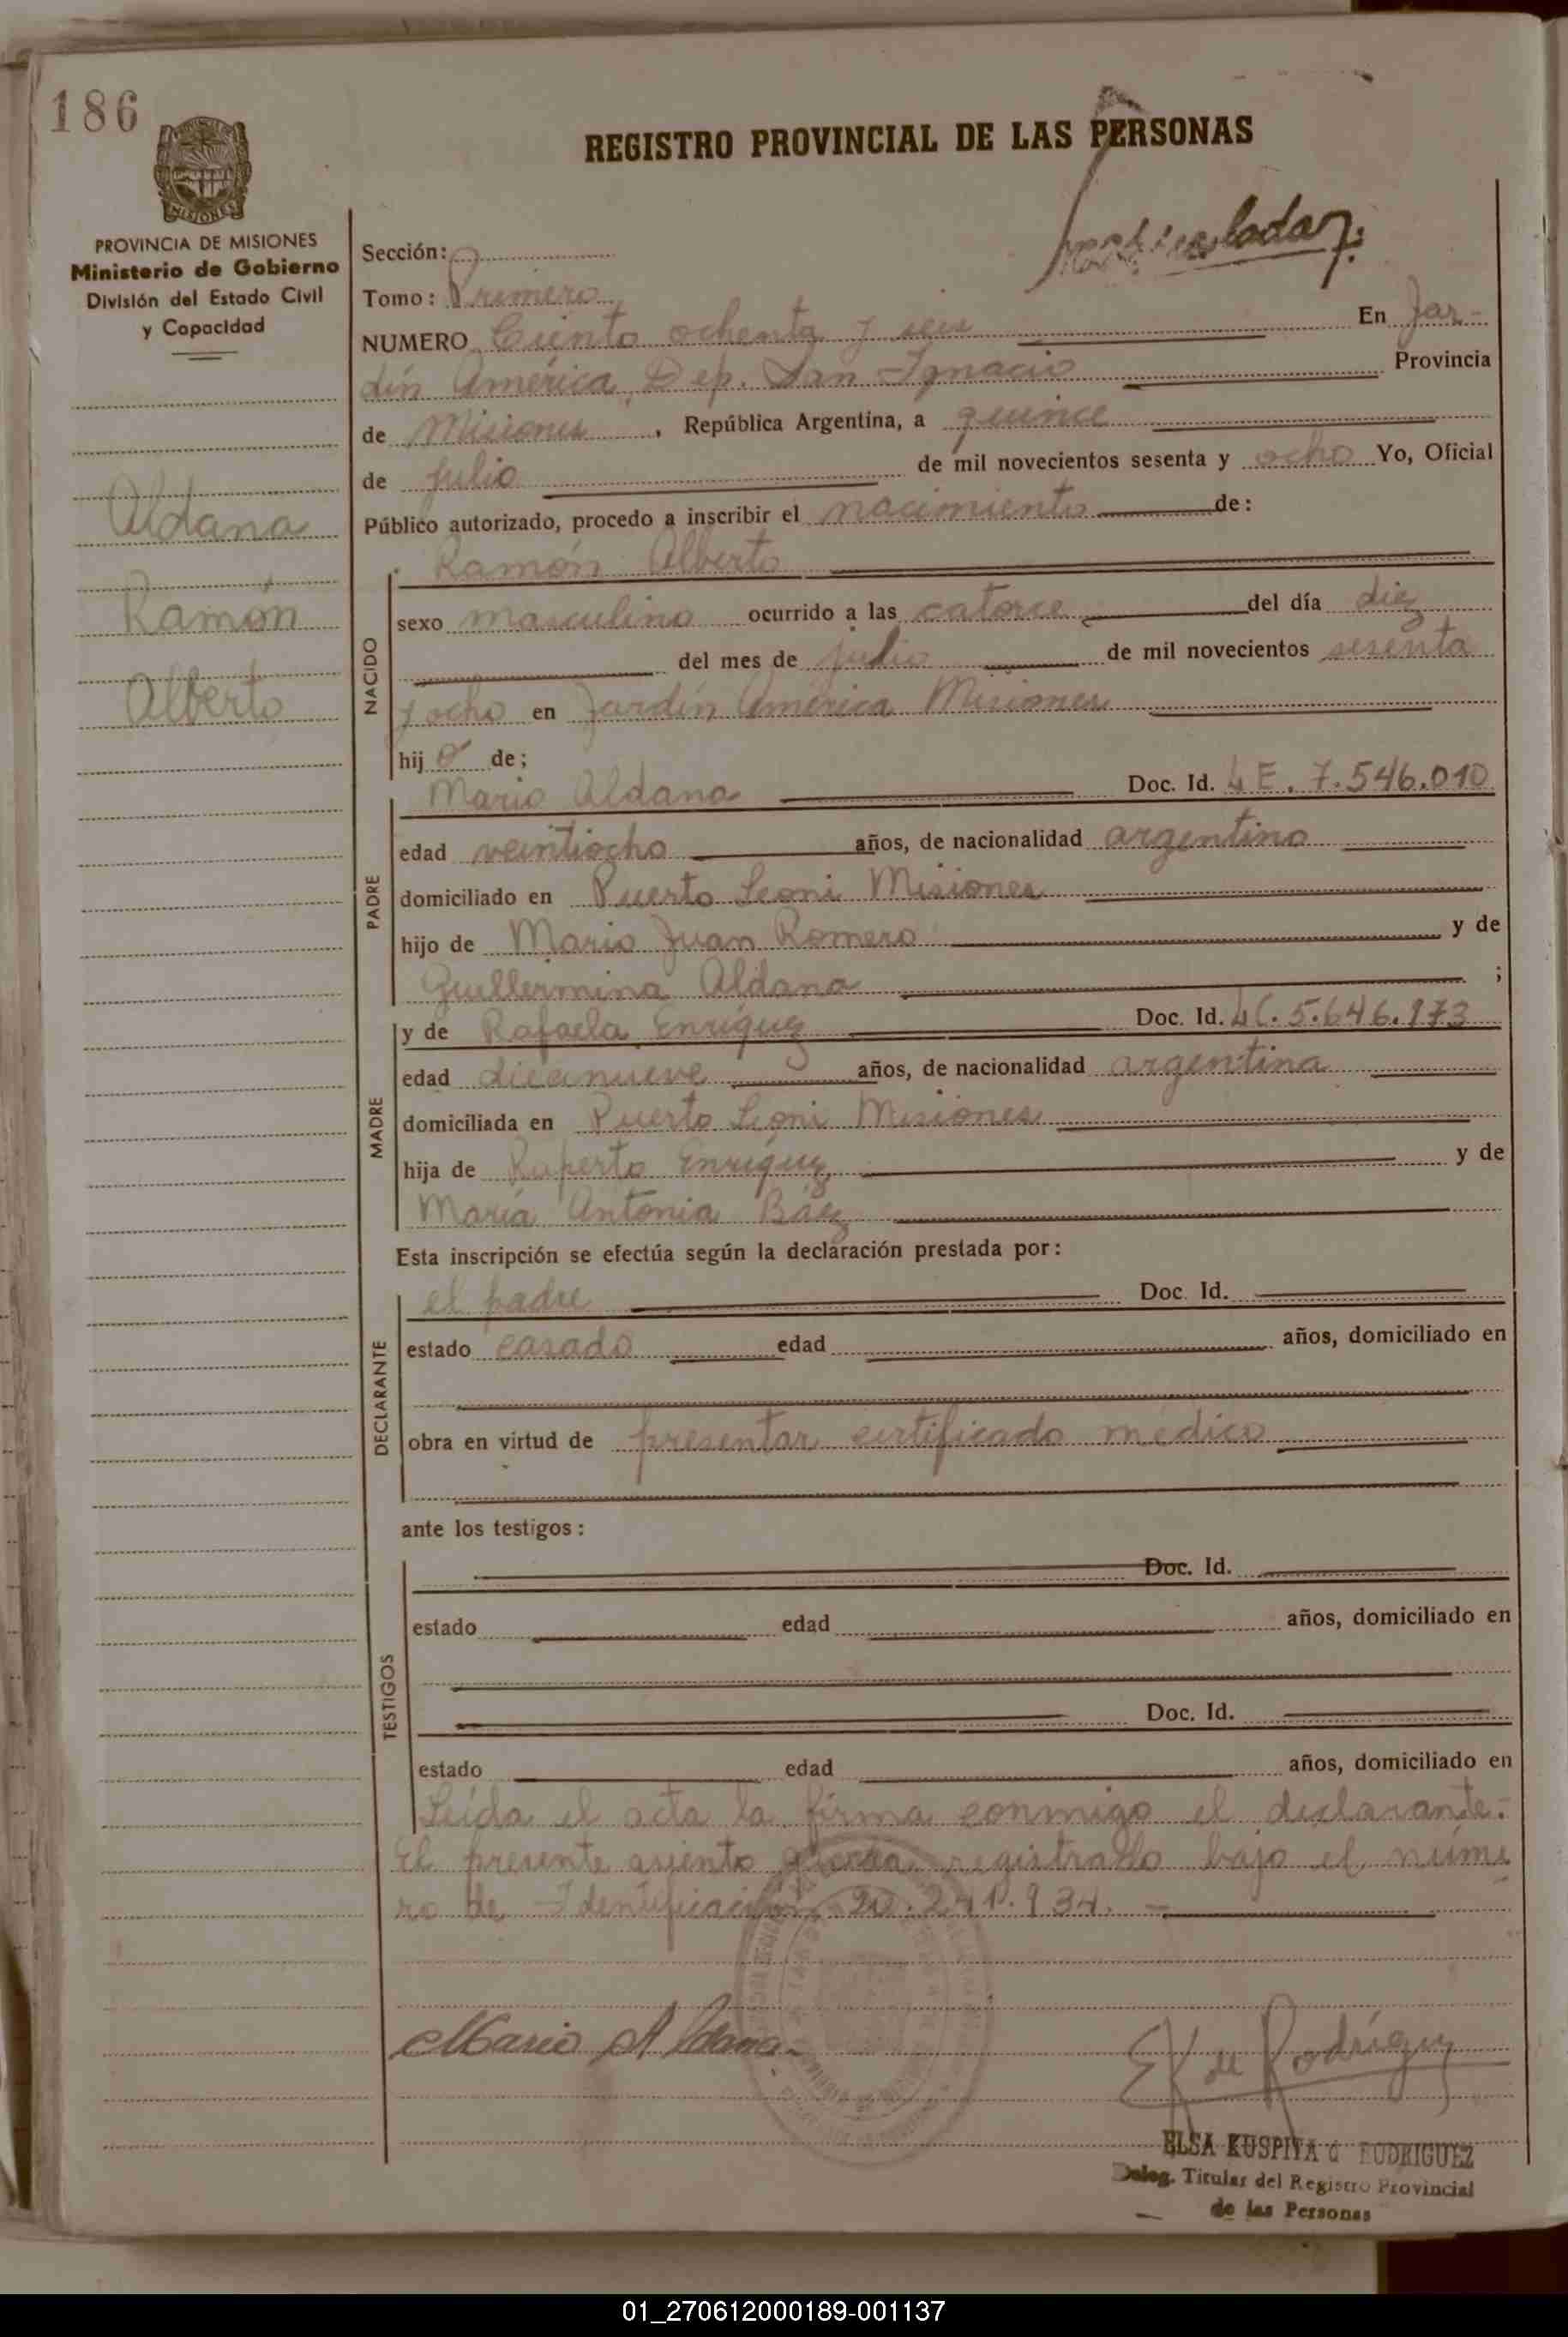 186
REGISTRO PROVINCIAL DE LAS PERSONAS
MISIONES
PROVINCIA DE MISIONES
Ministerio de Gobierno
División del Estado Civil
y Capacidad
Aldana
Ramón
Alberto
Sección:
Tomo: Primero
NUMERO Ciento ochenta y seis En Jar-
dín América, Dep. San Ignacio Provincia
de Misiones, República Argentina, a quince
de julio de mil novecientos sesenta y ocho Yo, Oficial
Público autorizado, procedo a inscribir el nacimiento de:
NACIDO
Ramón Alberto
sexo masculino ocurrido a las catorce del día diez
del mes de julio de mil novecientos sesenta
y ocho en Jardín América Misiones
hijo de;
PADRE
Mario Aldana Doc. Id. L E. 7.546.010
edad veintiocho años, de nacionalidad argentino
domiciliado en Puerto Leoni Misiones
hijo de Mario Juan Romero y de
Guillermina Aldana ;
MADRE
y de Rafaela Enríquez Doc. Id. LC. 5.646.173
edad diecinueve años, de nacionalidad argentina
domiciliada en Puerto Leoni Misiones
hija de Ruperto Enríquez y de
María Antonia Báez
Esta inscripción se efectúa según la declaración prestada por:
DECLARANTE
el padre Doc. Id.
estado casado edad años, domiciliado en
obra en virtud de presentar certificado médico
ante los testigos:
TESTIGOS
Doc. Id.
estado edad años, domiciliado en
Doc. Id.
estado edad años, domiciliado en
Leída el acta la firma conmigo el declarante.-
El presente asiento queda registrado bajo el núme
ro de Identificación 20.241.934. -
Mario Aldana
E K de Rodríguez
ELSA KUSPITA d RODRIGUEZ
Deleg. Titular del Registro Provincial
de las Personas
01_270612000189-001137